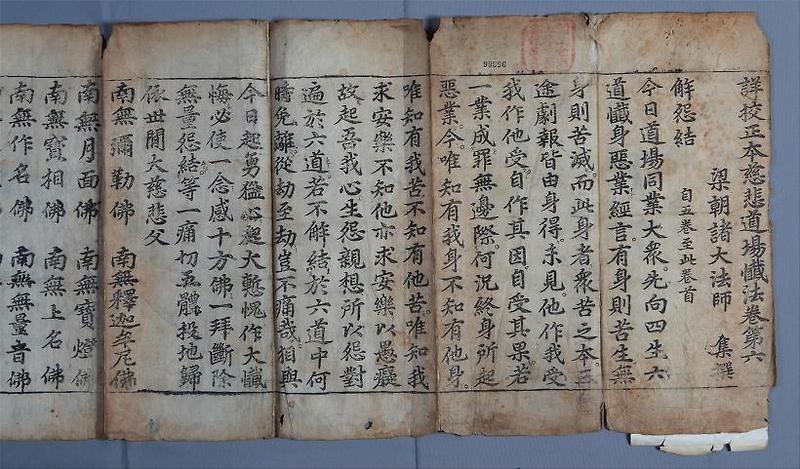 詳校正本慈悲道場懺法卷第六
梁朝諸大法師 集撰
解怨結 自五卷至此卷首
今日道場同業大衆先向四生六
道懺身惡業經言有身則苦生無
身則苦滅而此身者衆苦之本三
途劇報皆由身得未見他作我受
我作他受自作其因自受其果若
一業成罪無邊際何況終身所起
惡業今唯知有我身不知有他身
唯知有我苦不知有他苦唯知我
求安樂不知他亦求安樂以愚癡
故起吾我心生怨親想所以怨對
遍於六道若不解結於六道中何
時免離從劫至劫豈不痛哉相與
今日起勇猛心起大慚愧作大懺
悔必使一念感十方佛一拜斷除
無量怨結等一痛切五體投地歸
依世間大慈悲父
南無彌勒佛 南無釋迦牟尼佛
南無月面佛 南無寶燈佛
南無寶相佛 南無上名佛
南無作名佛 南無無量音佛